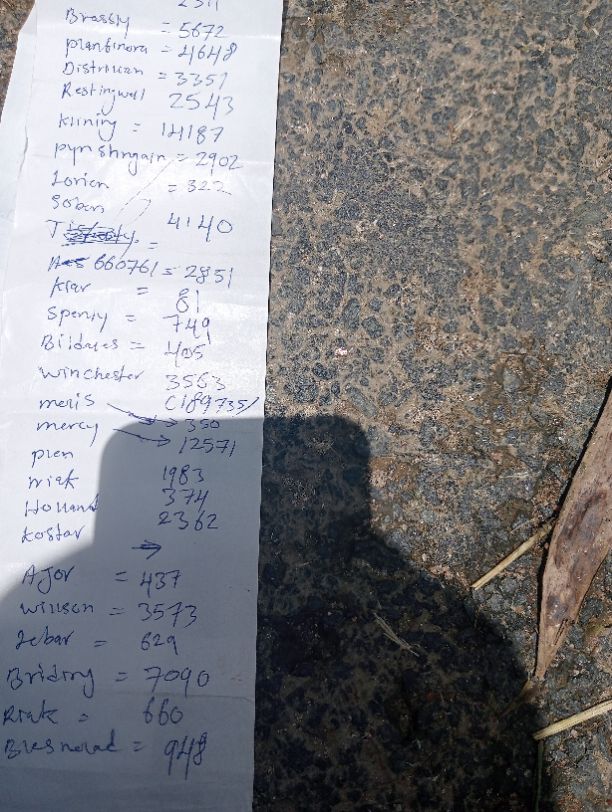 Brassly = 5672
planbinora = 4648
Distriwan = 3351
Restingwell 2543
klining = 14187
pynshngain = 2902
Lorien = 322
Soban
4140
660761 = 2851
kiar = 81
Spenly = 749
Bildales = 405
winchester 3563
meris C189735/
mercy → 350
pien → 12571
mrak 1983
Holland 374
kostar 2362
→
Ajor = 437
willson = 3573
Jebar = 629
Briding = 7090
Riak = 660
Bresnorad = 948